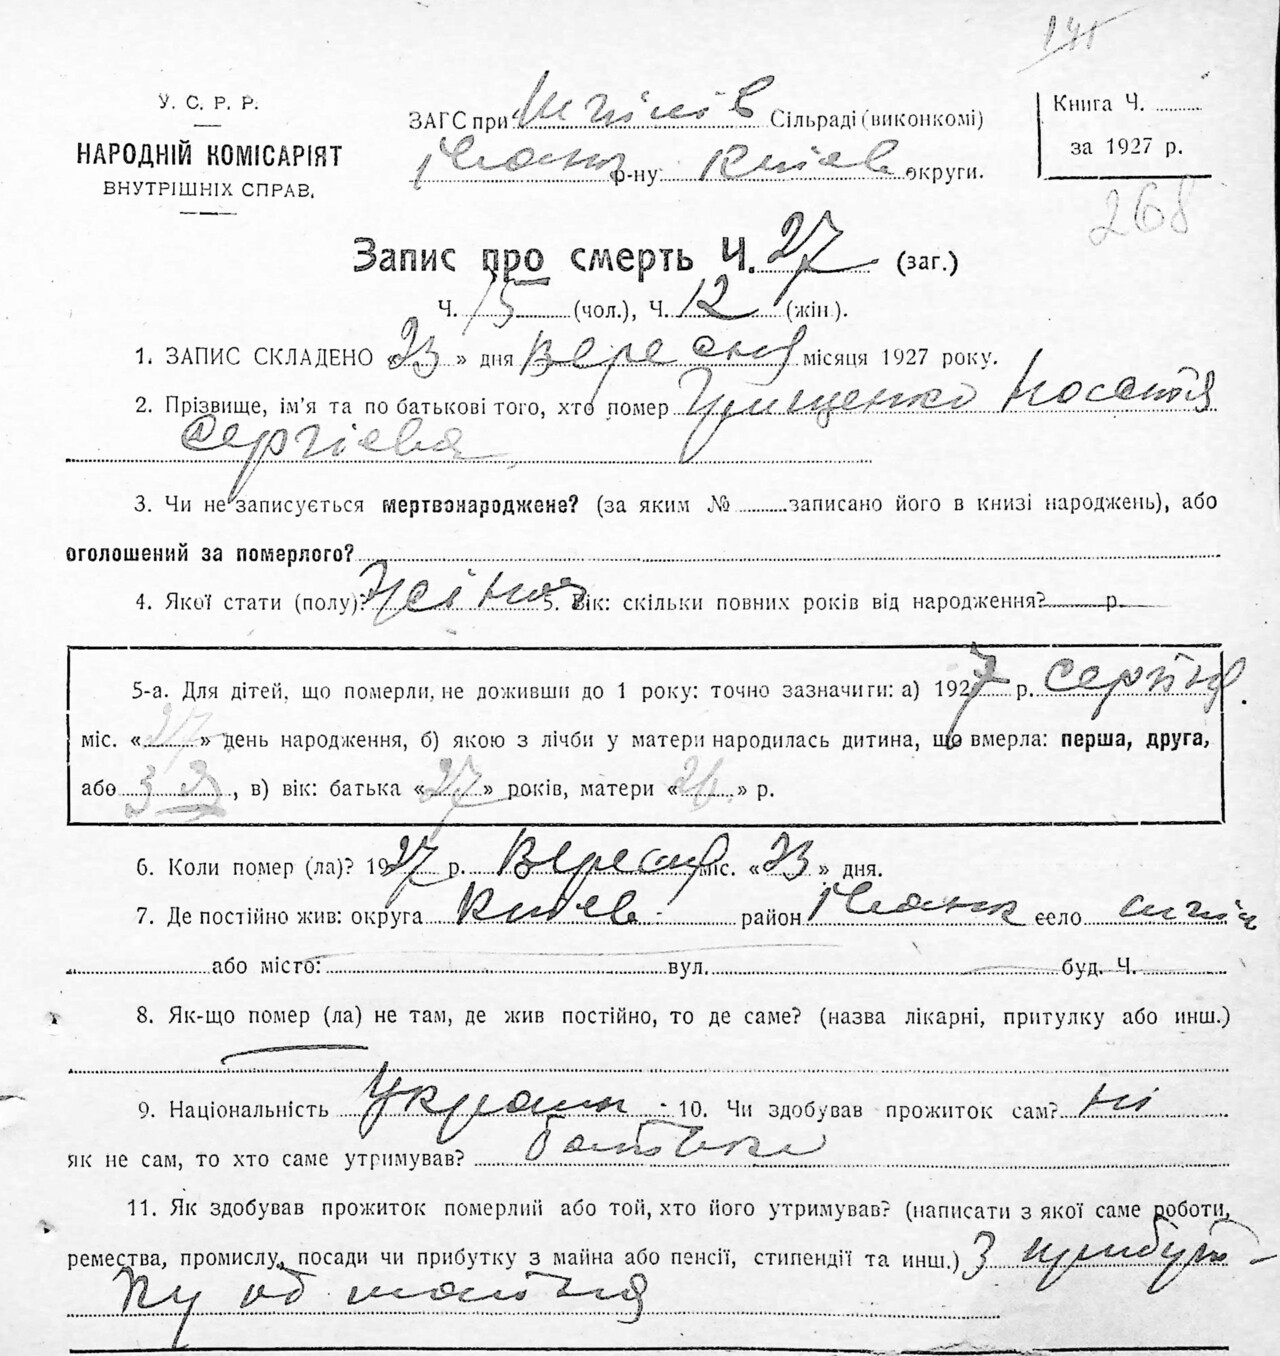 141
У. С. Р. Р.
НАРОДНІЙ КОМІСАРІЯТ
ВНУТРІШНІХ СПРАВ.
ЗАГС при Шпилів Сільраді (виконкомі)
р-ну Київ округи.
Книга Ч.
за 1927 р.
268
Запис про смерть Ч. 27 (заг.)
Ч. 15 (чол.), Ч. 12 (жін.).
1. ЗАПИС СКЛАДЕНО «23» дня Вересня місяця 1927 року.
2. Прізвище, ім'я та по батькові того, хто помер Грищенко
Сергієва
3. Чи не записується мертвонароджене? (за яким № записано його в книзі народжень), або
оголошений за померлого?
4. Якої стати (полу)? Жіноч 5. Вік: скільки повних років від народження? р.
5-а. Для дітей, що померли, не доживши до 1 року: точно зазначити: а) 1927 р. Серпня
міс. «27» день народження, б) якою з лічби у матери народилась дитина, що вмерла: перша, друга,
або 3 я, в) вік: батька «27» років, матери «26» р.
6. Коли помер (ла)? 1927 р. Вересня міс. «23» дня.
7. Де постійно жив: округа Київ район село
або місто: вул. буд. Ч.
8. Як-що помер (ла) не там, де жив постійно, то де саме? (назва лікарні, притулку або инш.)
9. Національність Україн 10. Чи здобував прожиток сам? ні
як не сам, то хто саме утримував? батьки
11. Як здобував прожиток померлий або той, хто його утримував? (написати з якої саме роботи,
ремества, промислу, посади чи прибутку з майна або пенсії, стипендії та инш.) З прибут-
ку од